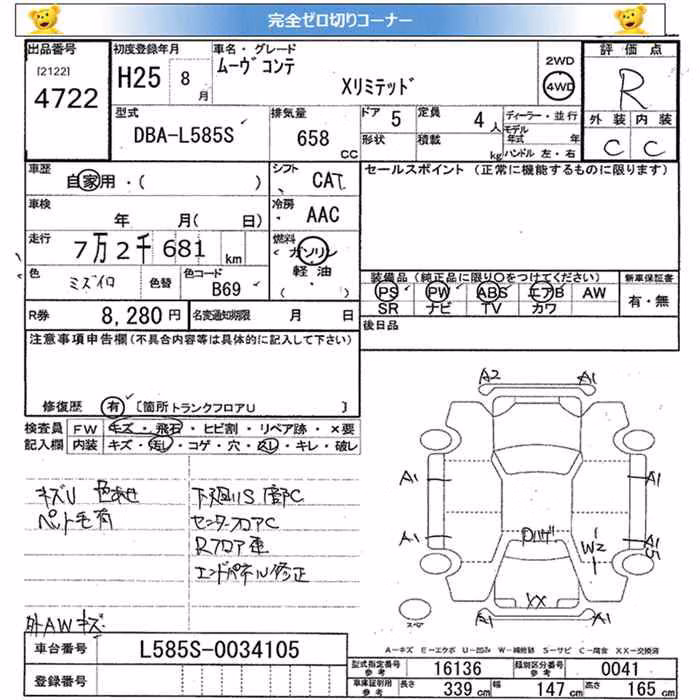 完全ゼロ切りコーナー
出品番号
[2122]
4722
初度登録年月
H25 8月
車名・グレード
ムーヴ コンテ
Xリミテッド
2WD
4WD
評価点
R
外装 内装
C C
型式
DBA-L585S
排気量
658
cc
ドア 5
形状
定員 4人
積載 kg
ディーラー・並行
モデル年式 年
ハンドル 左・右
車歴
自家用・( )
シフト
CAT
車検
年 月( 日)
冷房
AAC
走行
7万2千681 km
燃料
ガソリン
軽油
( )
色
ミズイロ
色替
色コード
B69
R券
8,280円
名変通知期限 月 日
セールスポイント (正常に機能するものに限ります)
装備品 (純正品に限り○をつけてください)
新車保証書
PS PW ABS エアB AW
SR ナビ TV カワ
有・無
後日品
注意事項申告欄(不具合内容等は具体的に記入して下さい)
修復歴 有 [箇所 トランクフロアU ]
検査員記入欄
FW キズ・飛石・ヒビ割・リペア跡・×要
内装 キズ・汚レ・コゲ・穴・スレ・キレ・破レ
キズU 色あせ
ペット毛有
下廻りS 腐C
センターフロアC
Rフロア歪
エンドパネル修正
外AWキズ
A2 A1
A1 A1
A1 A1
W2
XX
A1 A1
スペア
A-キズ E-エクボ U-凹み W-補修跡 S-サビ C-腐食 XX-交換済
車台番号
L585S-0034105
登録番号
型式指定番号
参考
16136
類別区分番号
参考
0041
車庫証明用
参考
長さ 339 cm 幅 147 cm 高さ 165 cm